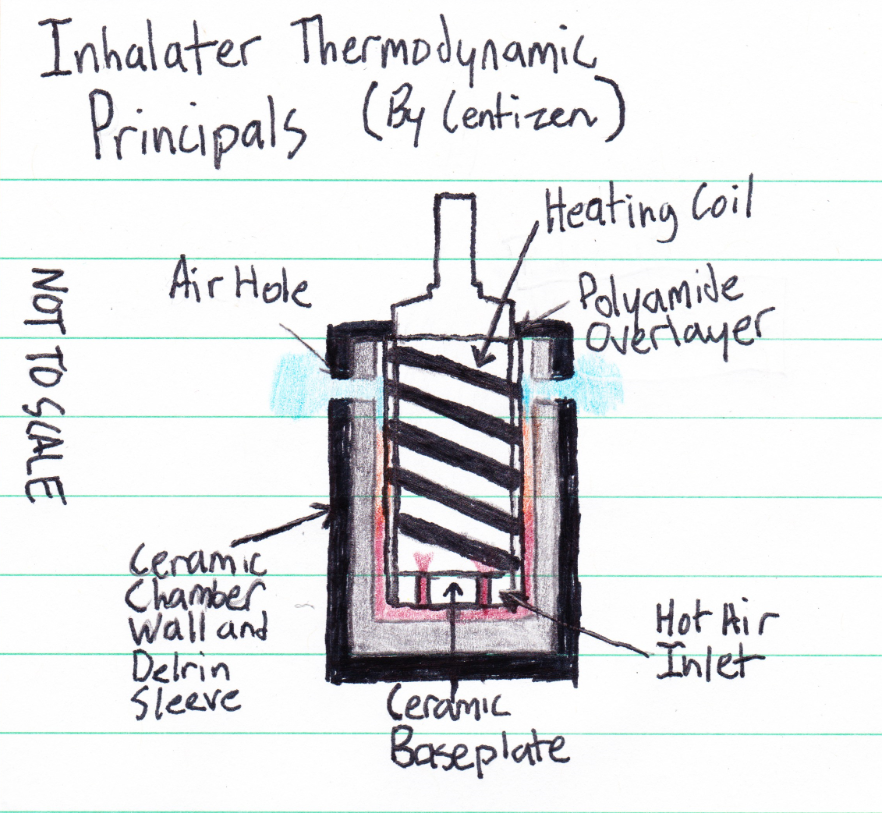 Inhalater Thermodynamic
Principals (By Centizen)
Heating Coil
Air Hole
Polyamide
Overlayer
NOT TO SCALE
Ceramic
Chamber
Wall and
Delrin
Sleeve
Hot Air
Inlet
Ceramic
Baseplate